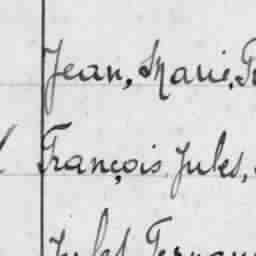 Jean, Marie,
François Jules,
Jules Fernan